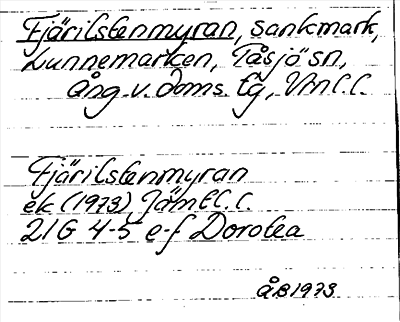 Fjärilstenmyran, sankmark,
Lunnemarken, Tåsjö sn,
Ång. v. doms. tg, Vtnl. l.
Fjärilstenmyran
ek (1973) Jämtl. l.
21G 4-5 e-f Dorotea
ÅB 1973